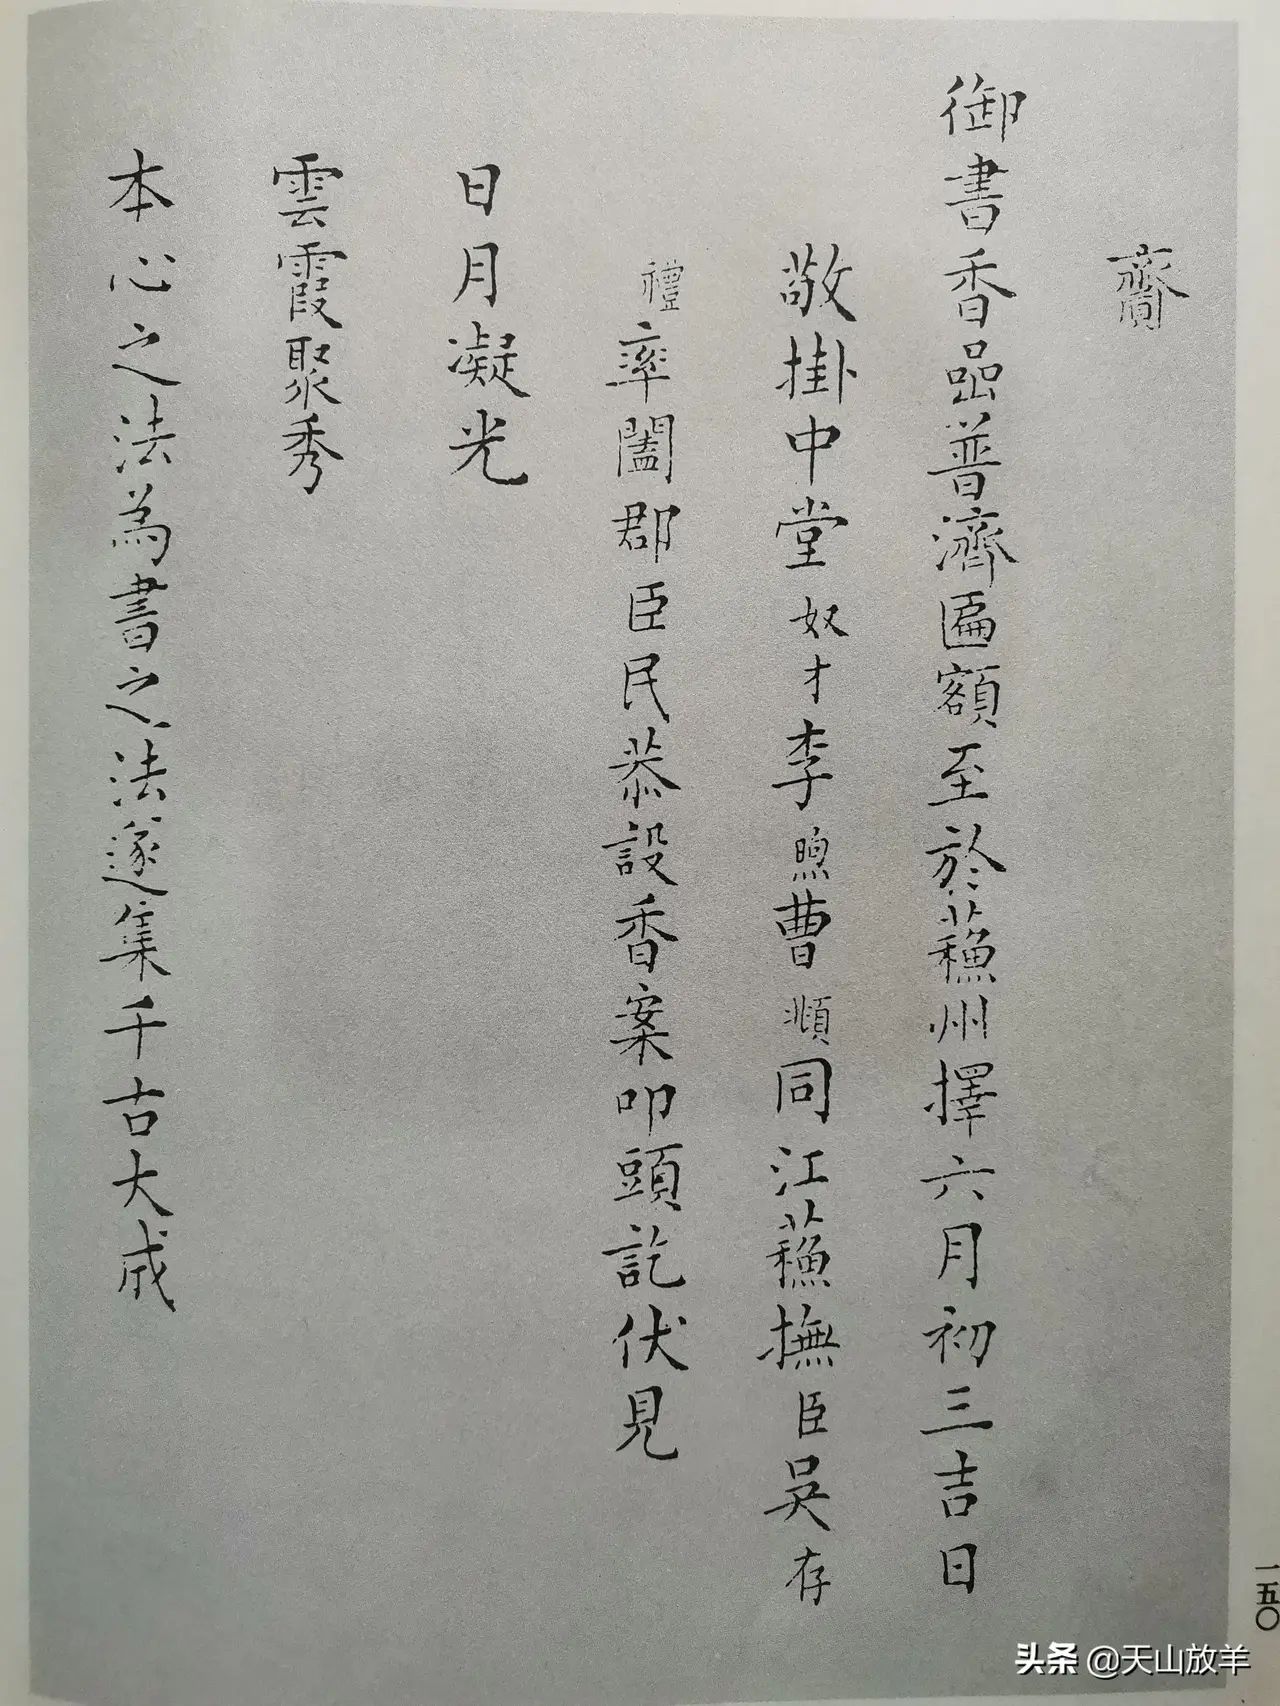 齎
御書香嵒普濟匾額至於蘓州擇六月初三吉日
敬掛中堂奴才李煦曹頫同江蘓撫臣吳存
禮率闔郡臣民恭設香案叩頭訖伏見
日月凝光
雲霞聚秀
本心之法為書之法遂集千古大成
一五〇
头条 @天山放羊